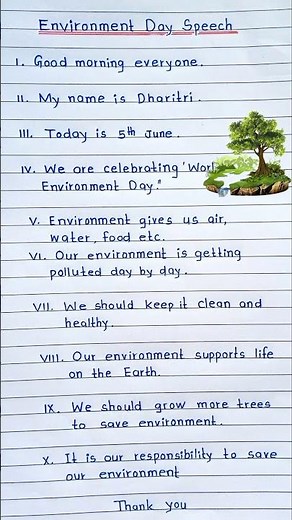 Environment Day Speech
I. Good morning everyone.
II. My name is Dharitri.
III. Today is 5th June.
IV. We are celebrating 'Worl
Environment Day."
V. Environment gives us air,
water, food etc.
VI. Our environment is getting
polluted day by day.
VII. We should keep it clean and
healthy.
VIII. Our environment supports life
on the Earth.
IX. We should grow more trees
to save environment.
X. It is our responsibility to save
our environment
Thank you